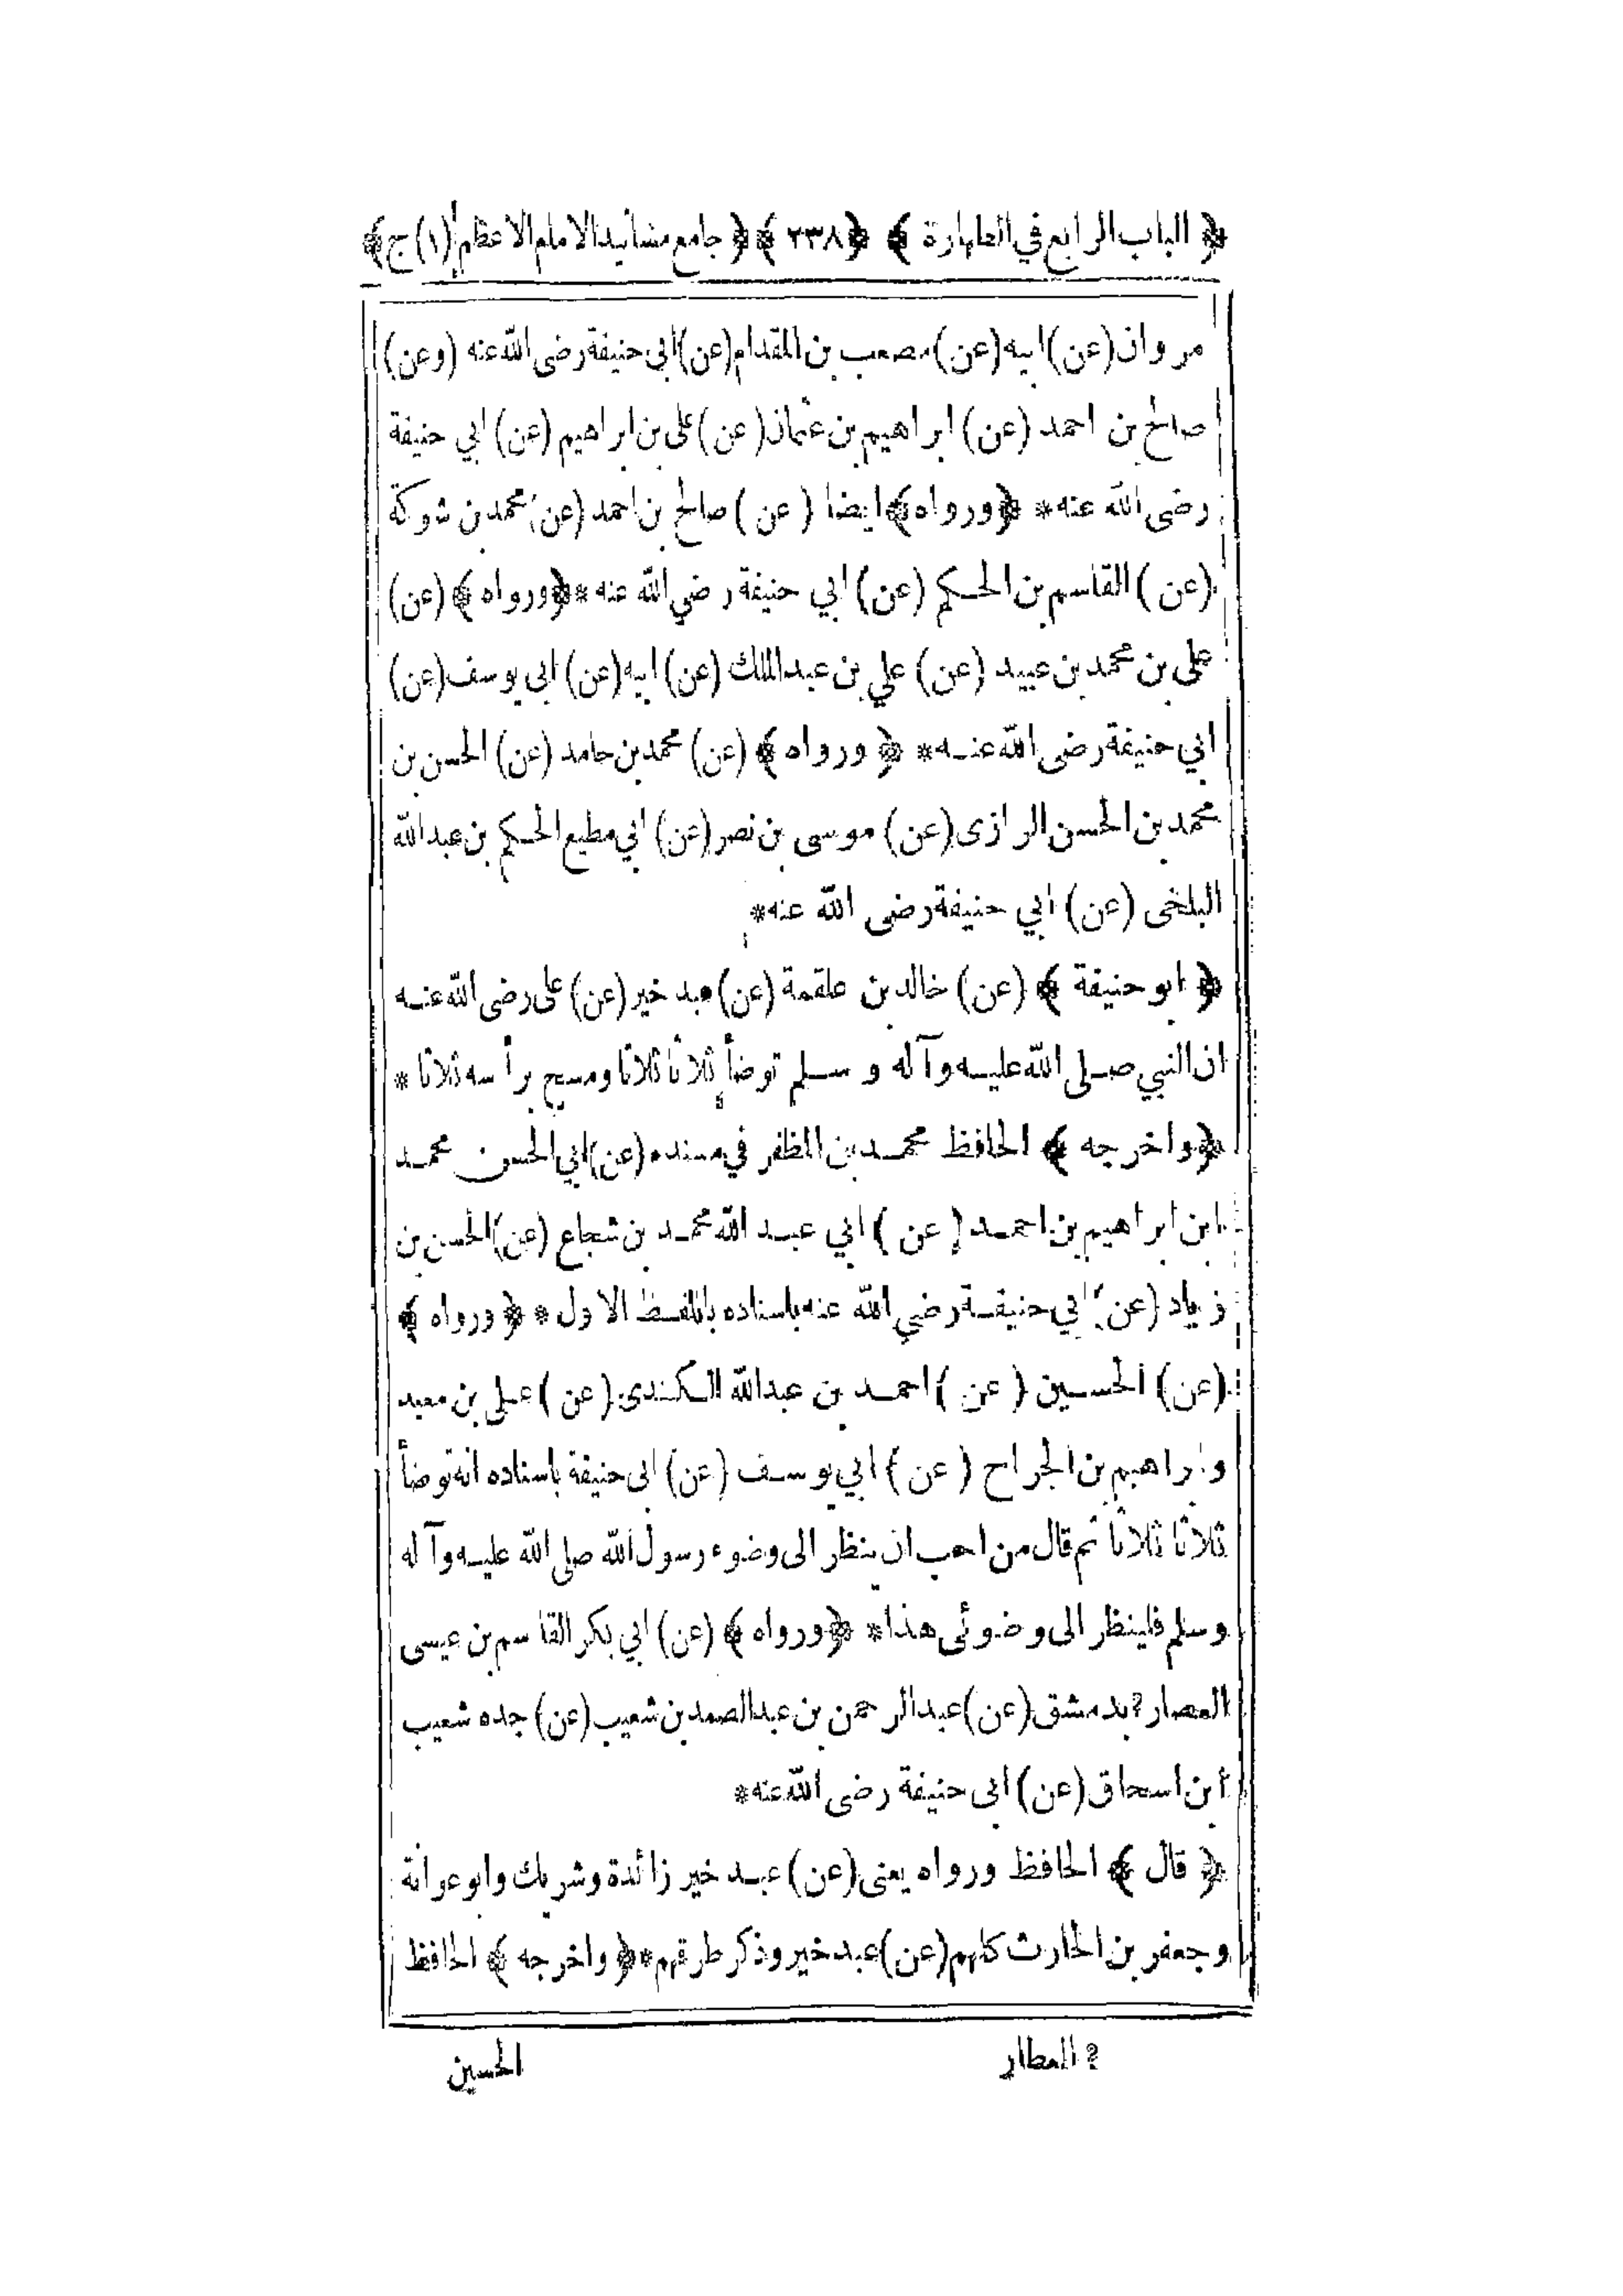 ﴿ الباب الرابع في الطهارة ﴾ ﴿٢٣٨﴾ ﴿ جامع مسانيد الامام الاعظم (١) ج ﴾
مروان (عن) ابيه (عن) مصعب بن المقدام (عن) ابى حنيفة رضى الله عنه (وعن)
صالح بن احمد (عن) ابراهيم بن عثمان (عن) على بن ابراهيم (عن) ابي حنيفة
رضى الله عنه* ﴿ورواه﴾ ايضا (عن) صالح بن احمد (عن) محمد بن شوكة
(عن) القاسم بن الحكم (عن) ابي حنيفة رضي الله عنه* ﴿ورواه﴾ (عن)
على بن محمد بن عبيد (عن) علي بن عبد الملك (عن) ابيه (عن) ابى يوسف (عن)
ابي حنيفة رضى الله عنه* ﴿ورواه﴾ (عن) محمد بن حامد (عن) الحسن بن
محمد بن الحسن الرازى (عن) موسى بن نصر (عن) ابي مطيع الحكم بن عبد الله
البلخى (عن) ابي حنيفة رضى الله عنه*
﴿ ابو حنيفة ﴾ (عن) خالد بن علقمة (عن) عبد خير (عن) على رضى الله عنه
ان النبي صلى الله عليه وآله وسلم توضأ ثلاثا ثلاثا ومسح برأسه ثلاثا *
﴿واخرجه﴾ الحافظ محمد بن المظفر في مسنده (عن) ابي الحسن محمد
ابن ابراهيم بن احمد (عن) ابي عبد الله محمد بن شجاع (عن) الحسن بن
زياد (عن) ابي حنيفة رضي الله عنه باسناده باللفظ الاول * ﴿ورواه﴾
(عن) الحسين (عن) احمد بن عبد الله الكندى (عن) على بن معبد
وابراهيم بن الجراح (عن) ابي يوسف (عن) ابى حنيفة باسناده انه توضأ
ثلاثا ثلاثا ثم قال من احب ان ينظر الى وضوء رسول الله صلى الله عليه وآله
وسلم فلينظر الى وضوئى هذا* ﴿ورواه﴾ (عن) ابي بكر القاسم بن عيسى
العصار ? بدمشق (عن) عبد الرحمن بن عبد الصمد بن شعيب (عن) جده شعيب
ابن اسحاق (عن) ابى حنيفة رضى الله عنه*
﴿ قال ﴾ الحافظ ورواه يعنى (عن) عبد خير زائدة وشريك وابو عوانة
وجعفر بن الحارث كلهم (عن) عبد خير وذكر طرقهم* ﴿واخرجه﴾ الحافظ
? العطار
الحسين